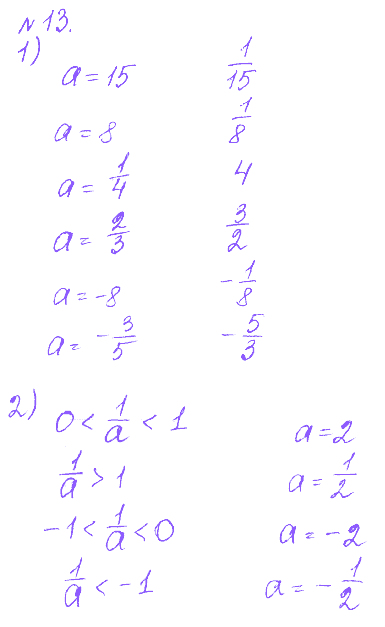 №13.
1)
a = 15 1/15
a = 8 1/8
a = 1/4 4
a = 2/3 3/2
a = -8 -1/8
a = -3/5 -5/3
2) 0 < 1/a < 1 a = 2
1/a > 1 a = 1/2
-1 < 1/a < 0 a = -2
1/a < -1 a = -1/2